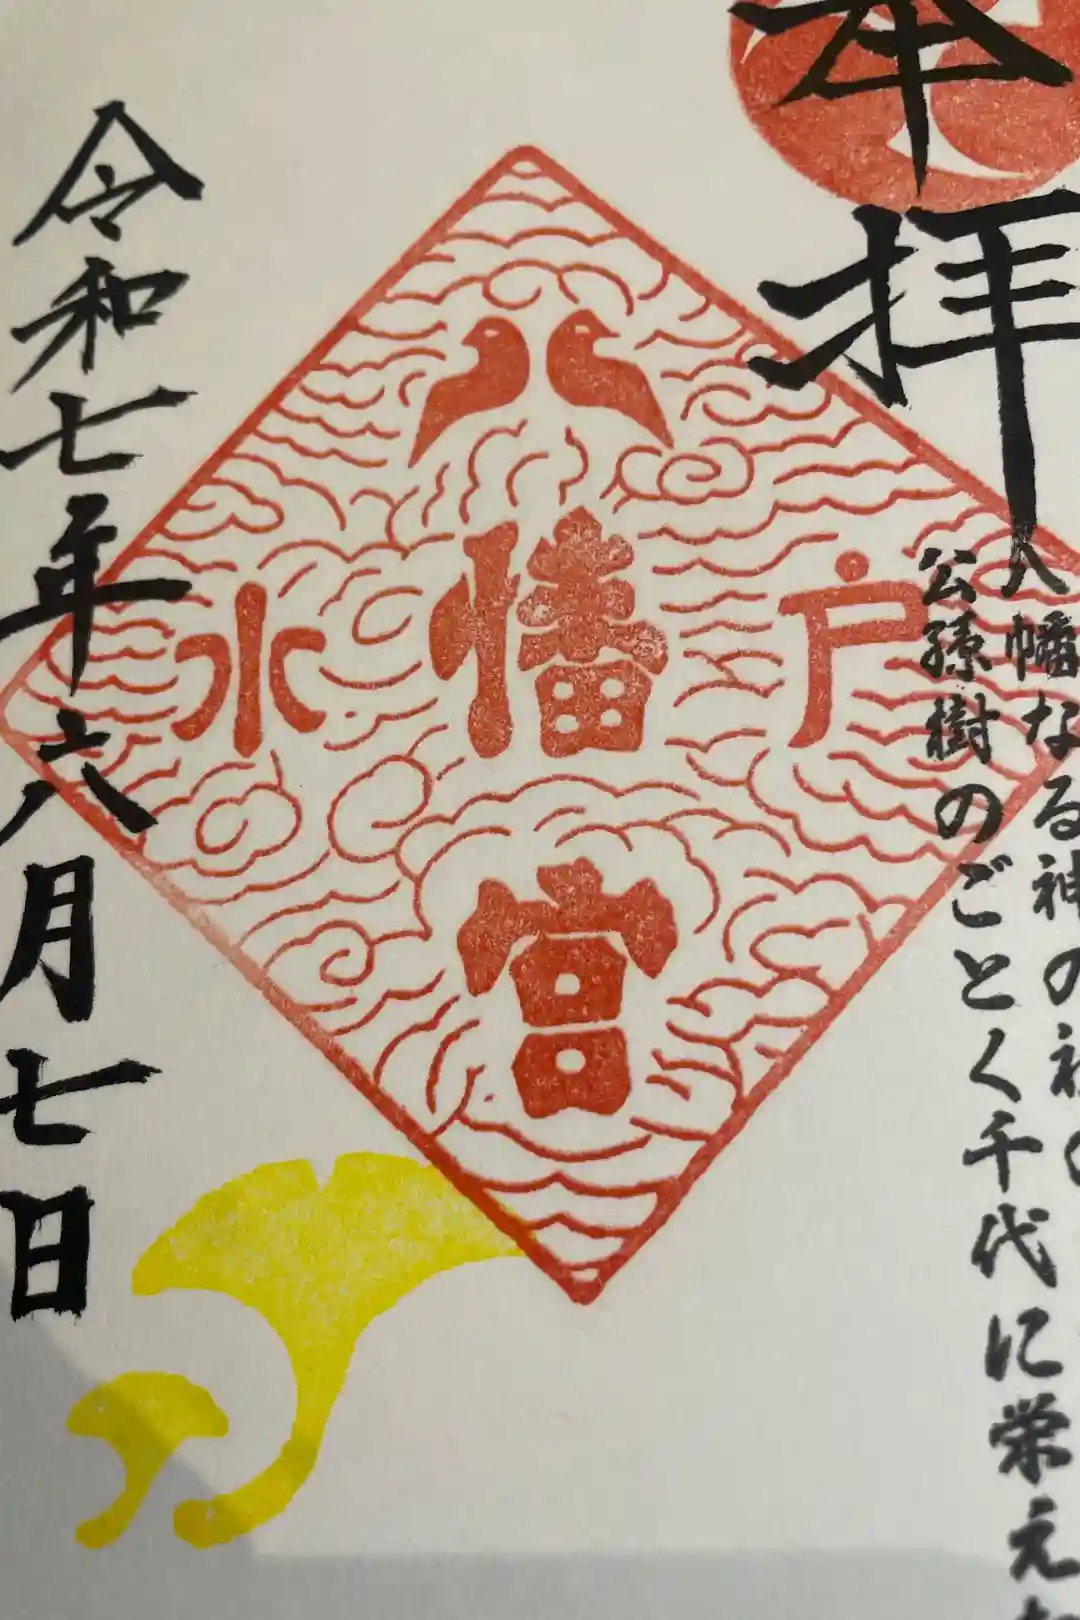 奉拝
八幡なる神の
公孫樹のごとく千代に栄え
水戸
八幡宮
令和七年六月七日